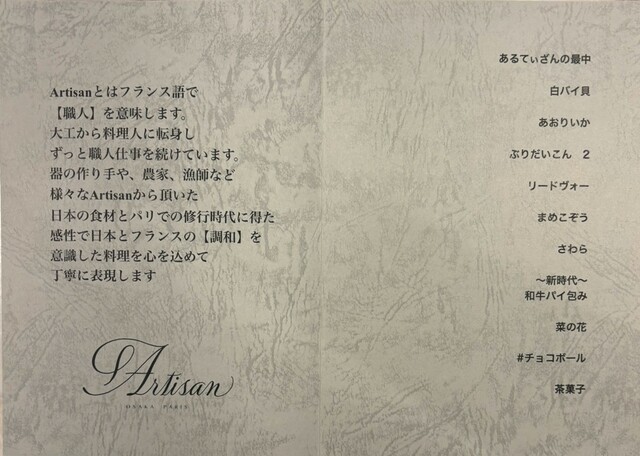 Artisanとはフランス語で
【職人】を意味します。
大工から料理人に転身し
ずっと職人仕事を続けています。
器の作り手や、農家、漁師など
様々なArtisanから頂いた
日本の食材とパリでの修行時代に得た
感性で日本とフランスの【調和】を
意識した料理を心を込めて
丁寧に表現します
Artisan
OSAKA PARIS
あるてぃざんの最中
白バイ貝
あおりいか
ぶりだいこん 2
リードヴォー
まめこぞう
さわら
〜新時代〜
和牛パイ包み
菜の花
#チョコボール
茶菓子